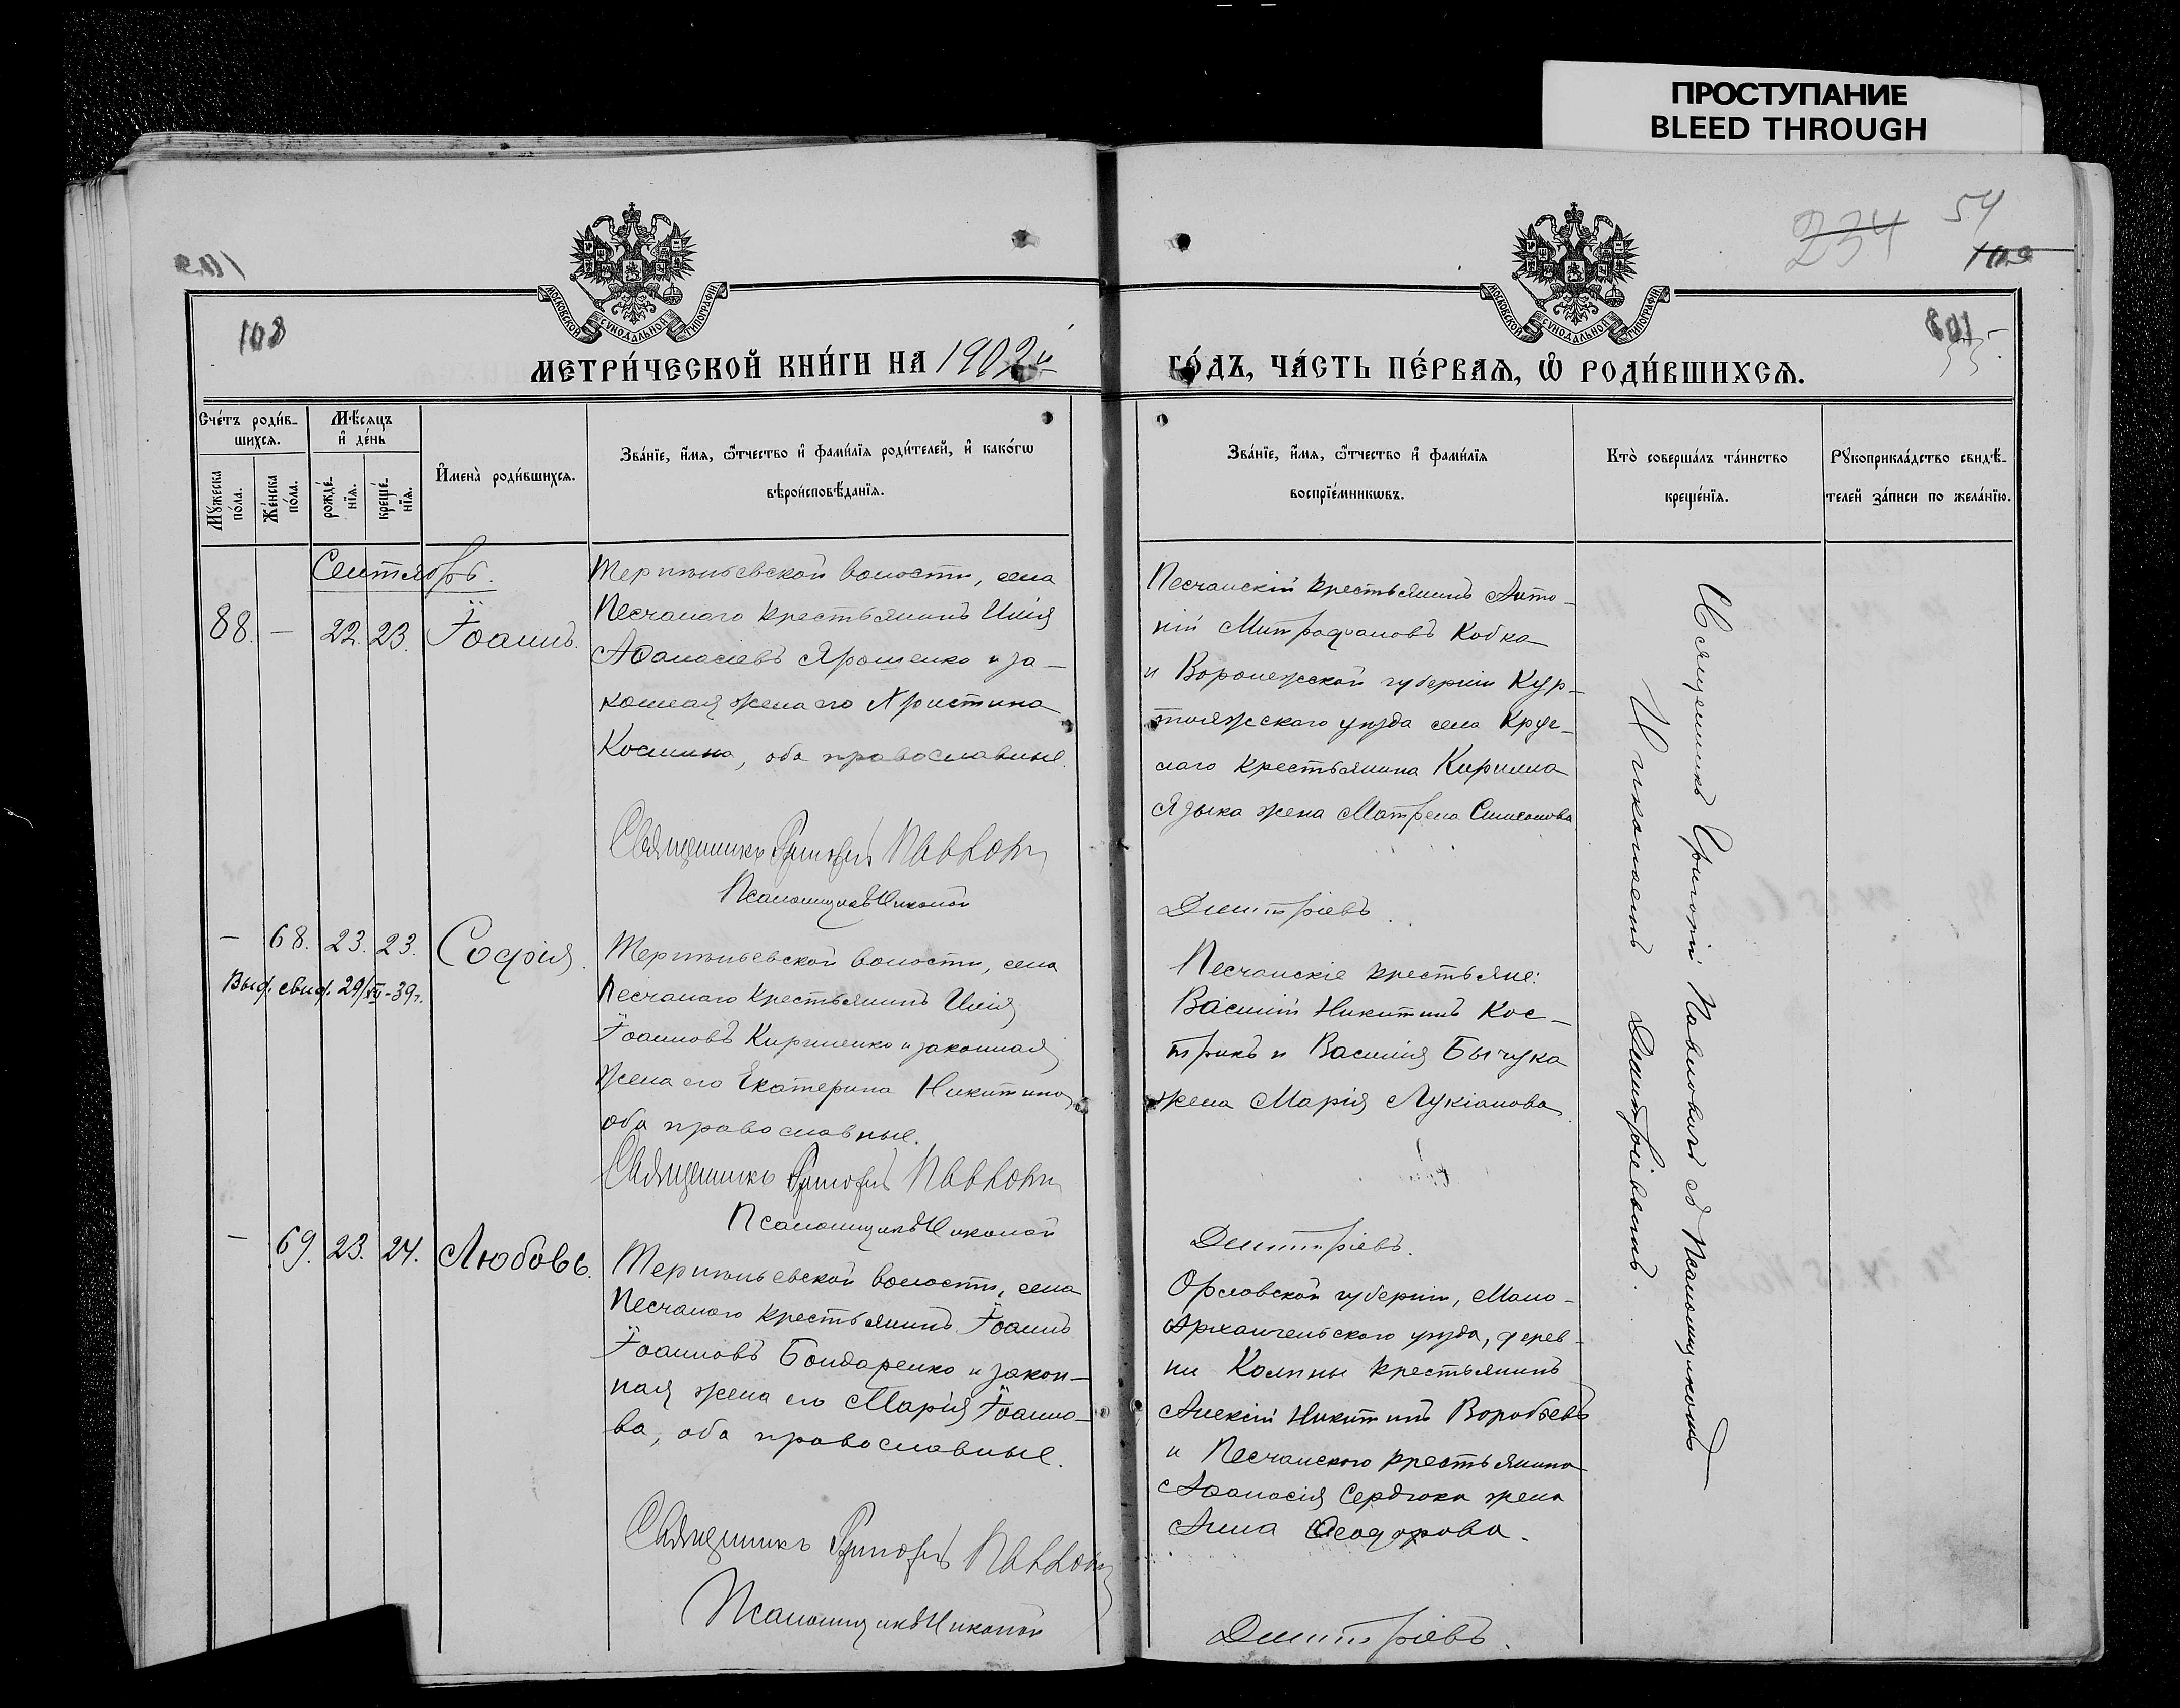 ПРОСТУПАНИЕ
BLEED THROUGH
234 54
108
МОСКОВСКОЙ СѴНОДАЛЬНОЙ ТИПОГРАФІИ
МОСКОВСКОЙ СѴНОДАЛЬНОЙ ТИПОГРАФІИ
МЕТРИ́ЧЕСКОЙ КНИ́ГИ НА 1902й
ГО́ДЪ, ЧА́СТЬ ПЕ́РВАѦ, Ѡ҆ РОДИ́ВШИХСѦ.
Сче́тъ роди́в-
шихсѧ.
Мѣ́сѧцъ
и҆ де́нь
Мꙋ́жеска
по́ла.
Же́нска
по́ла.
рожде́-
нїѧ.
креще́-
нїѧ.
И҆мена̀ роди́вшихсѧ.
Зва́нїе, и҆́мѧ, ѻ҆́тчество и҆ фами́лїѧ роди́телей, и҆ како́гѡ
вѣроисповѣ́данїѧ.
Зва́нїе, и҆́мѧ, ѻ҆́тчество и҆ фами́лїѧ
воспрїе́мникѡвъ.
Кто̀ соверша́лъ та́инство
креще́нїѧ.
Рꙋкоприкла́дство свидѣ́-
телей за́писи по жела́нїю.
Сентябрь.
88. — 22. 23. Іоаннъ.
Терпѣньевской волости, села
Песчаного крестьянинъ Илія
Аѳанасіевъ Ярошенко и за-
конная жена его Христина
Космина, оба православные.
Священникъ Григорій Павлович
Псаломщикъ Николай
Песчанскій крестьянинъ Анто-
ній Митрофановъ Кобка
и Воронежской губерніи Кур-
тояжского уѣзда села Круг-
лаго крестьянина Кирилла
Языка жена Матрена Симеонова
Димитріевъ.
— 68. 23. 23. Софія.
Выд. свид. 29/XII-39г.
Терпѣньевской волости, села
Песчаного крестьянинъ Илія
Іоанновъ Кириленко и законная
жена его Екатерина Никитина,
оба православные.
Священникъ Григорій Павлович
Псаломщикъ Николай
Песчанскіе крестьяне:
Василій Никитинъ Кос-
трикъ и Василія Бычука
жена Марія Лукіанова.
Димитріевъ.
— 69. 23. 24. Любовь.
Терпѣньевской волости, села
Песчаного крестьянинъ Іоаннъ
Іоанновъ Бондаренко и закон-
ная жена его Марія Іоанно-
ва, оба православные.
Священникъ Григорій Павлович
Псаломщикъ Николай
Орловской губерніи, Мало-
Архангельского уѣзда, дерев-
ни Колпны крестьянинъ
Алексій Никитинъ Воробьевъ
и Песчанского крестьянина
Аѳанасія Сердюка жена
Анна Ѳеодорова.
Димитріевъ.
Священникъ Григорій Павловичъ съ Псаломщикомъ
Николаемъ Димитріевымъ.